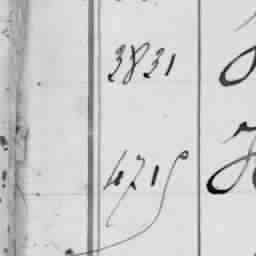 3831
4715